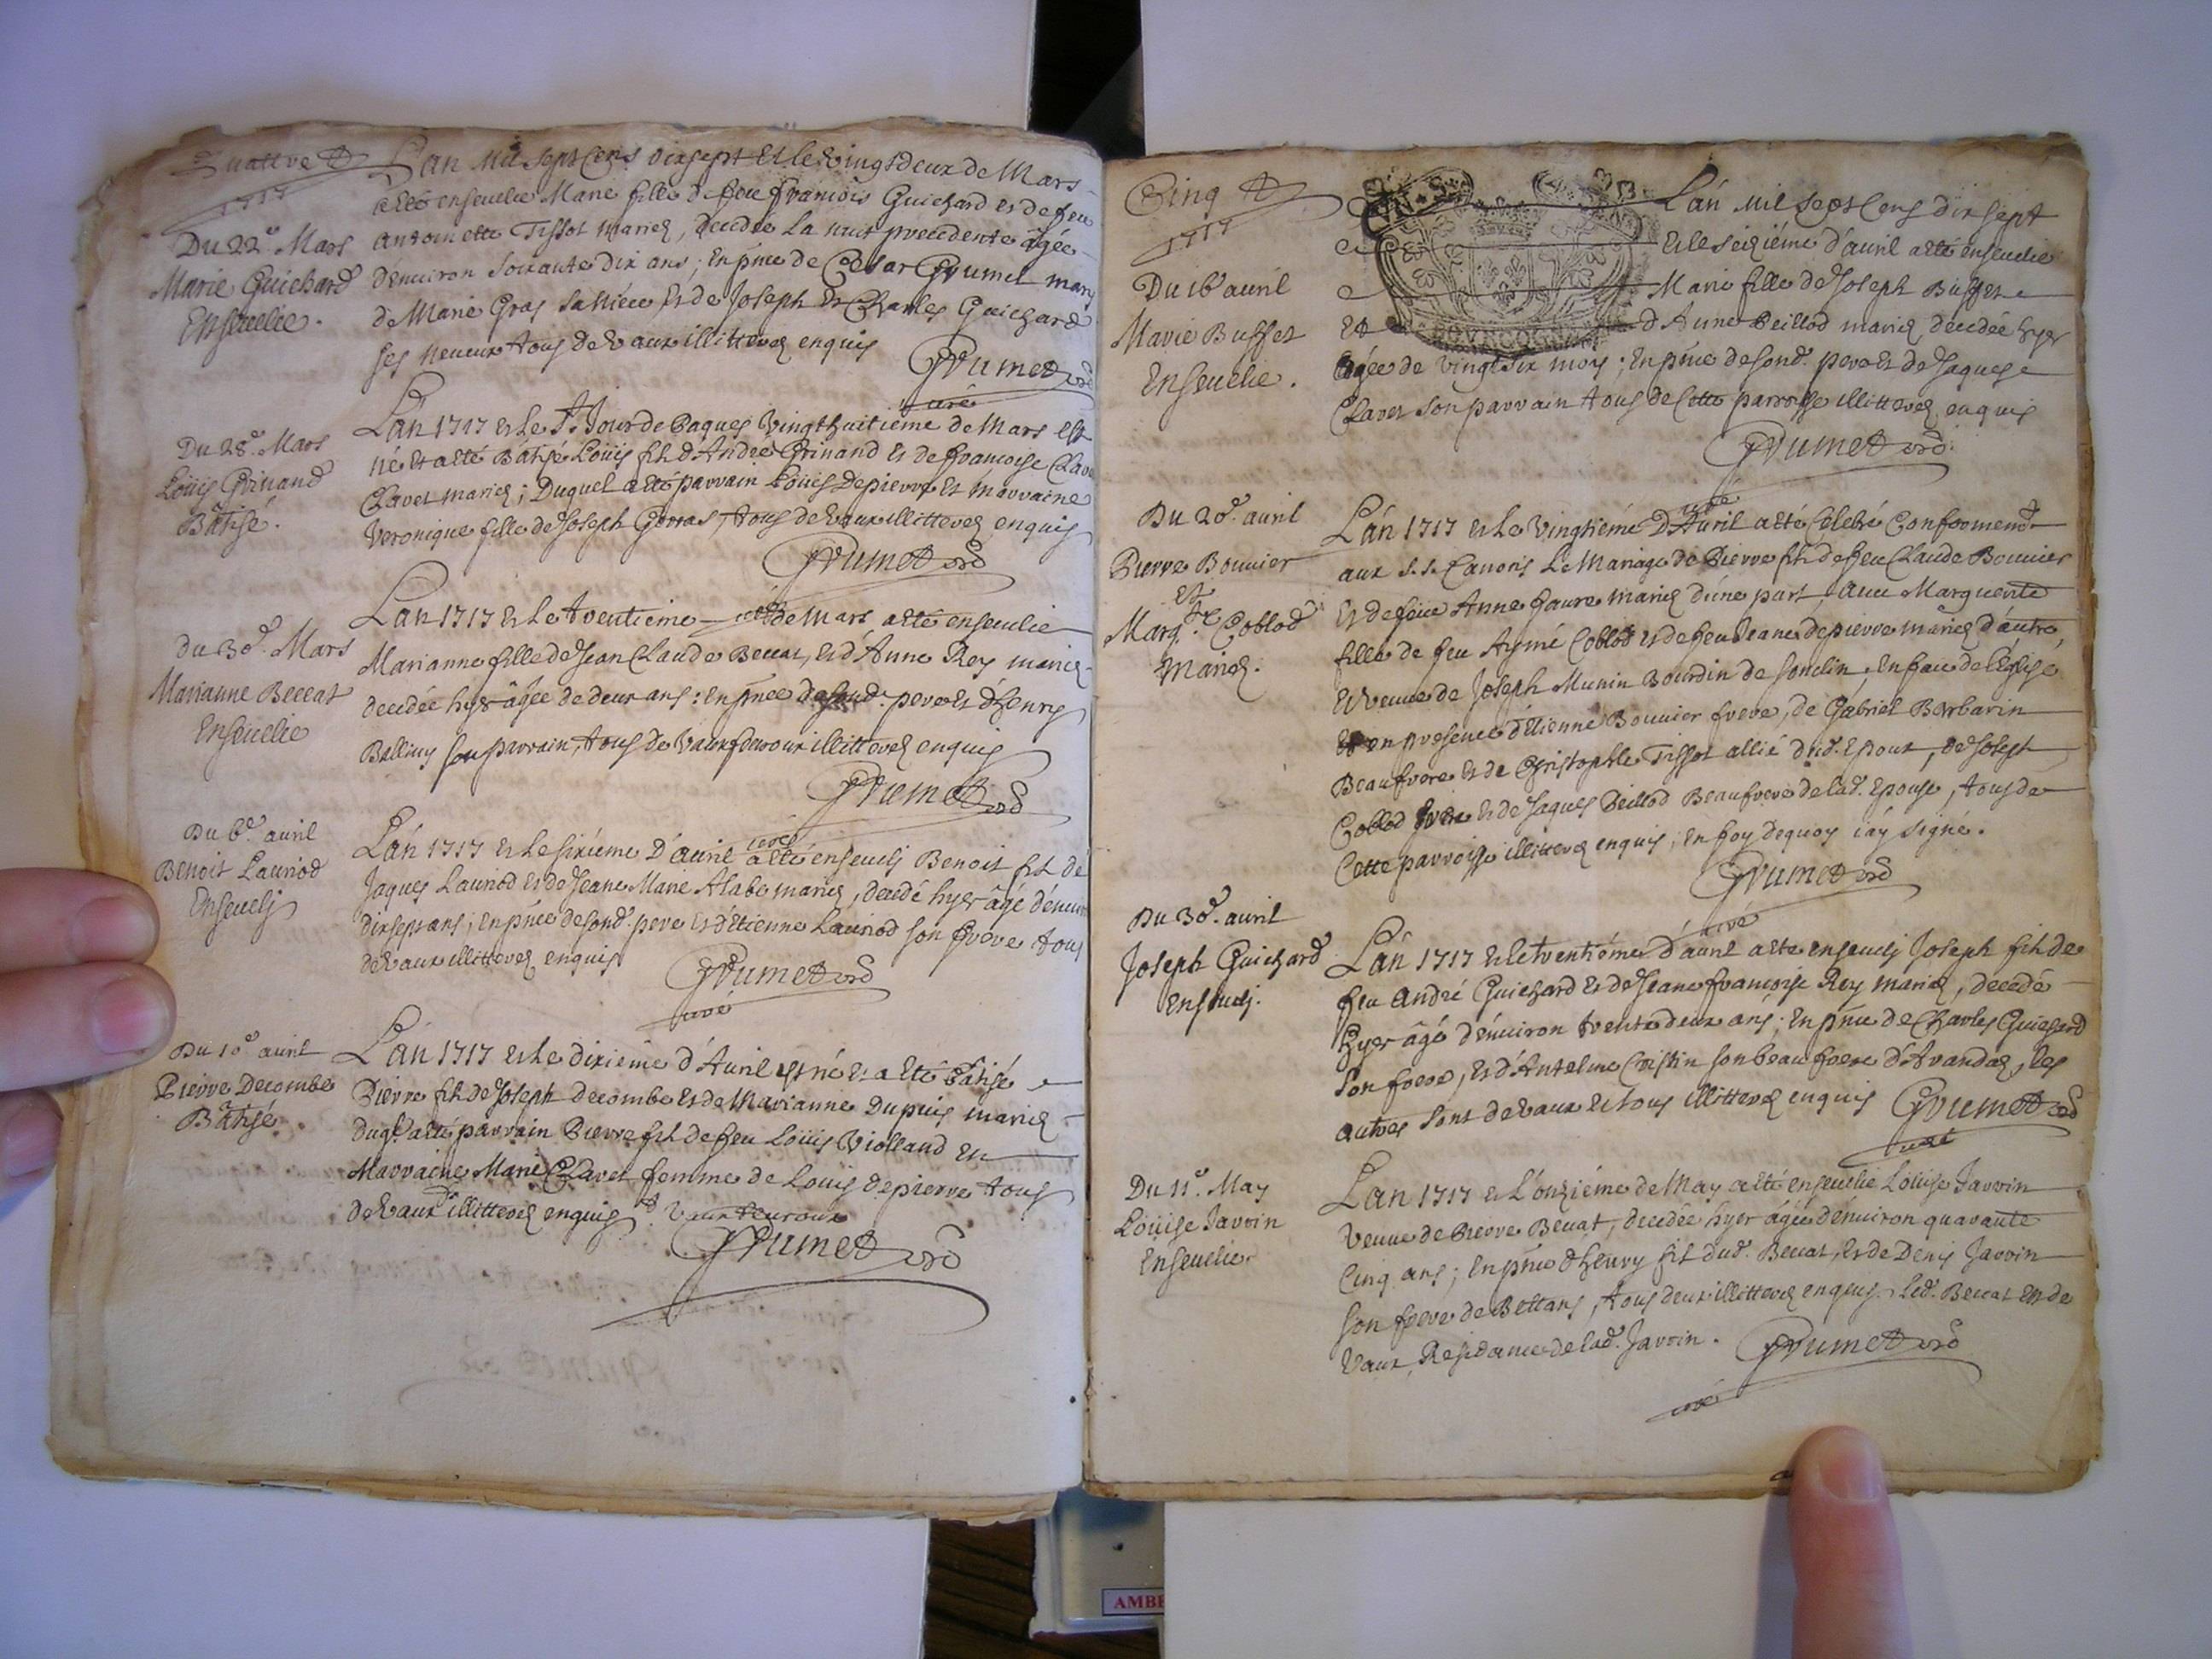 Quattre
1717
Du 22e Mars
Marie Guichard
Enseuelie.
Lan Mil sept Cens dixsept Et le Vingt deux de Mars
a eté enseuelie Marie fille de feu françois Guichard et de feue
antoinette Tissot mariez, decedée La nuit precedente âgée
d'énuiron soixante dix ans; En pñce de Cesar Grumet mary
de Marie Gras sa Niéce et de Joseph Et Charles Guichard
ses neueux tous de Vaux illitterez enquis
Grumet
curé
Du 28e. Mars
Loüis Grinand
Bâtisé.
Lán 1717 et Le St Jour de Paques Vingthuitiéme de Mars est
né et a eté Bâtisé Loüis fils d'André Grinand et de françoise
Clavet mariez; Duquel a eté parrain Loüis Depierre et marraine
Veronique fille de Joseph Gerras, tous de Vaux illitterez enquis
Grumet
curé
du 30e. Mars
Marianne Beccat
Enseuelie
Lan 1717 et Le trentiéme de Mars a eté enseuelie
Marianne fille de Jean Claude Beccat, et d'Anne Rey mariez
decedée hyer âgée de deux ans: en pñce de sond. pere et d'henry
Balliuy son parrain, tous de Vaux illitterez enquis
Grumet
curé
Du 6e. auril
Benoit Lauriod
Enseuelj
Lán 1717 et Le sixiéme D'auril a eté enseuelj Benoit fils de
Jaques Lauriod et de Jeane Marie Alabe mariez, decedé hyer âgé d'énuiron
dixsept ans; en pñce de sond. pere et d'Etienne Lauriod son frere tous
de Vaux illitterez enquis
Grumet
curé
Du 10e auril
Pierre Decombe
Bâtisé
Lán 1717 et Le dixiéme d'Auril est né et a eté Bâtisé
Pierre fils de Joseph decombe et de Marianne Dupuis mariez
duql a eté parrain Pierre fils de feu Loüis Violland Et
Marraine Marie Clavet femme de Louis depierre tous
de Vaux illitterez enquis
Grumet
Cinq
1717
Du 16 auril
Marie Buffet
Enseuelie.
Lán Mil Sept Cens dix sept
et le seiziéme d'auril a eté enseuelie
Marie fille de Joseph Buffet
Et d'Anne Beillod mariez decedée hyer
âgée de Vingt six moys; En pñce de sond. pere et de Jaques
Clavet son parrain tous de Cette parroisse illitterez enquis
Grumet
curé
Du 20e. auril
Pierre Bouuier
et
Margte. Coblod
Mariez.
Lán 1717 et Le Vingtiéme D'Auril a eté Celebré Conformemt.
aux S.S. Canons Le Mariage de Pierre fils de feu Claude Bouuier
Et de feüe Anne faure mariez d'une part, auec Marguerite
fille de feu Aymé Coblod et de feu Jeane Depierre mariez d'autre,
et Veuue de Joseph Munin Bourdin de Sonclin, en face de l'Eglise
et en presence d'Etienne Bouuier frere, de Gabriel Barbarin
Beaufrere et de Christophle Tissot allié dud. Epoux, de Joseph
Coblod frere et de Jaques Beillod Beaufrere de lad. Epouse, tous de
Cette parroisse illitterez enquis; en foy dequoy j'áy signé.
Grumet
curé
Du 30e. auril
Joseph Guichard
enseuelj.
Lán 1717 et le trentiéme d'auril a eté enseuelj Joseph fils de
feu André Guichard et de Jeane françoise Rey mariez, decedé
hyer âgé d'énuiron trente deux ans; En pñce de Charles Guichard
son frere, et d'Antelme Cristin son beau frere d'Arandaz, les
autres sont de Vaux et tous illitterez enquis
Grumet
curé
Du 11e. May
Loüise Jarrin
Enseuelie
Lan 1717 et L'onziéme de May a eté enseuelie Loüise Jarrin
Veuue de Pierre Beccat, decedée hyer âgée d'énuiron quarante
Cinq ans; en pñce d'henry fils dud. Beccat, et de Denis Jarrin
son frere de Bettans, tous deux illitterez enquis. led. Beccat est de
Vaux, Residance de lad. Jarrin.
Grumet
curé
AMBE